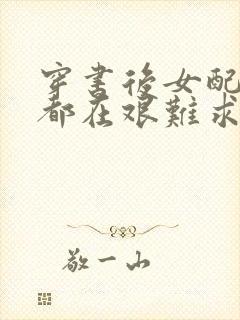 穿書後女配
都在艱難求
敬一山